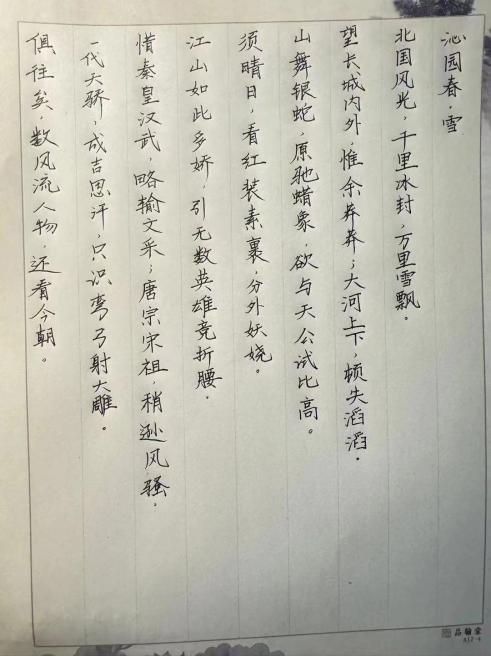 沁园春,雪
北国风光,千里冰封,万里雪飘。
望长城内外,惟余莽莽;大河上下,顿失滔滔。
山舞银蛇,原驰蜡象,欲与天公试比高。
须晴日,看红装素裹,分外妖娆。
江山如此多娇,引无数英雄竞折腰。
惜秦皇汉武,略输文采;唐宗宋祖,稍逊风骚。
一代天骄,成吉思汗,只识弯弓射大雕。
俱往矣,数风流人物,还看今朝。